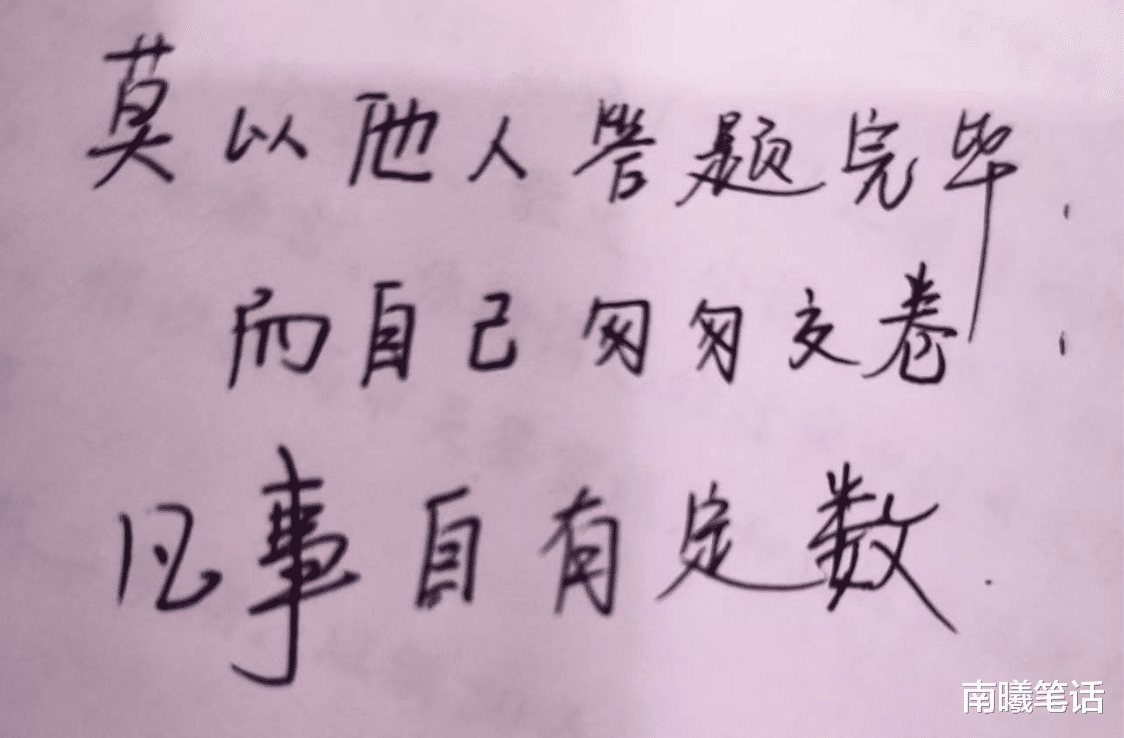 莫以他人答题完毕，
而自己匆匆交卷，
凡事自有定数.
南曦笔话